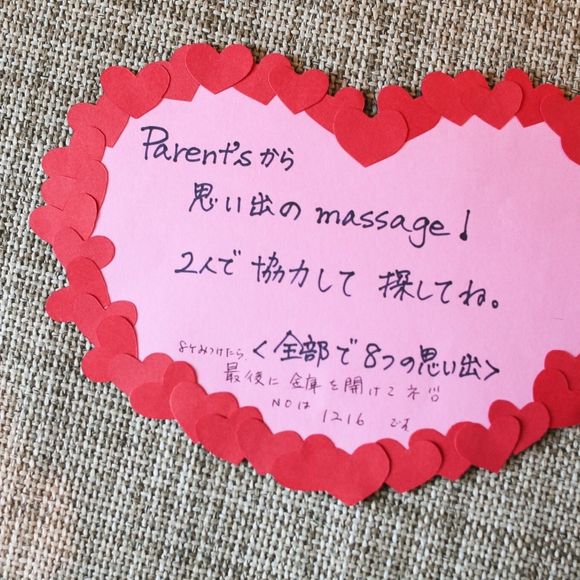 Parent'sから
思い出の massage!
2人で 協力して 探してね。
<全部で8つの思い出>
8ケみつけたら
最後に 金庫を開けてネ
NOは 1216 です